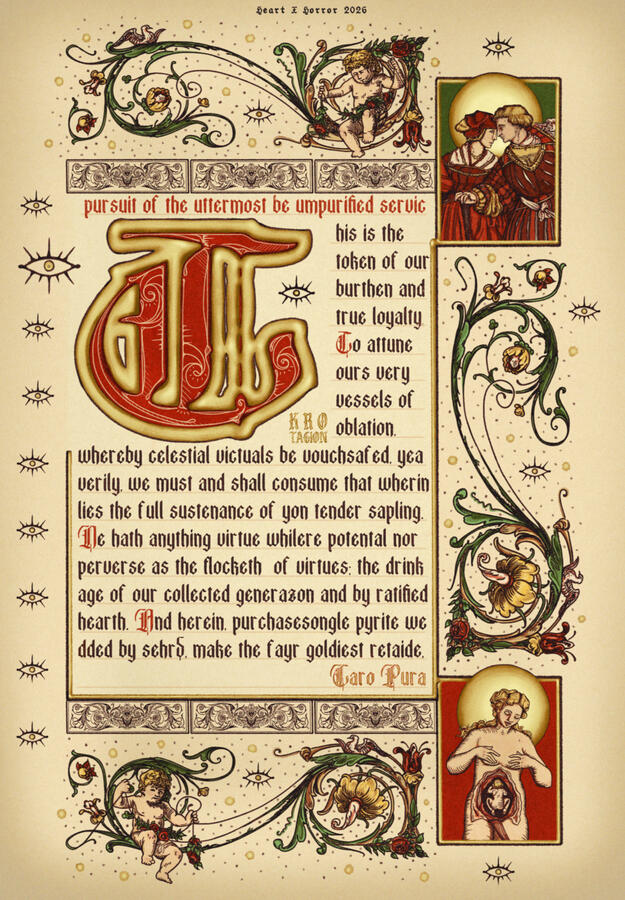 Heart I Horror 2026
pursuit of the uttermost be umpurified servic
This is the
token of our
burthen and
true loyalty
To attune
ours very
vessels of
oblation.
KRO
TAGION
whereby celestial victuals be vouchsafed, yea
verily, we must and shall consume that wherin
lies the full sustenance of yon tender sapling.
Ne hath anything virtue whilere potental nor
perverse as the flocketh of virtues; the drink
age of our collected generazon and by ratified
hearth. And herein, purchasesongle pyrite we
dded by sehrd, make the fayr goldiest retaide.
Caro Pura